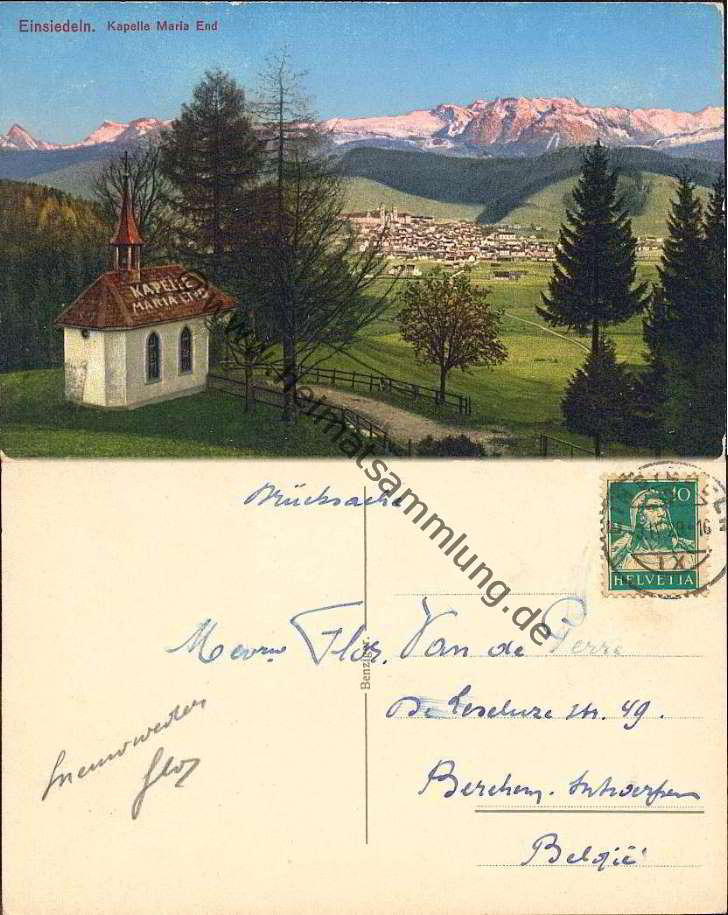 Einsiedeln. Kapelle Maria End
KAPELLE
MARIA END
www.heimatsammlung.de
Drucksache
10
HELVETIA
IX
Mevrw Flor. Van de Perre
De Leseluze str. 49.
Berchem. Antwerpen
België
Benziger.
Flor